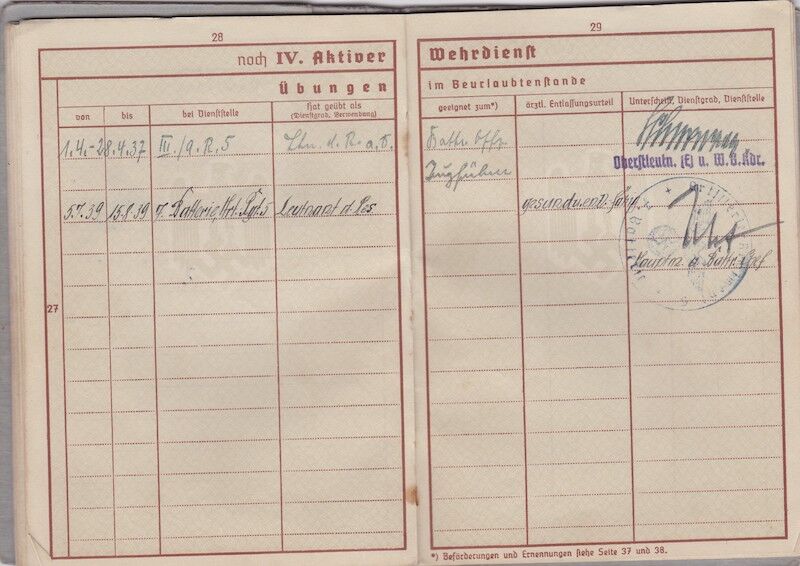 28
noch IV. Aktiver
Übungen
von
bis
bei Dienststelle
Hat geübt als
(Dienstgrad, Verwendung)
1.4.-28.4.37 III./A.R.5 Ltn. d. R. a.D.
5.7.39 15.8.39 7. Batterie, Art. Rgt. 5 Leutnant d. Res
27
29
Wehrdienst
im Beurlaubtenstande
geeignet zum*)
ärztl. Entlassungsurteil
Unterschrift, Dienstgrad, Dienststelle
Battr. Offz.
Zugführer
Oberstleutn. (E) u. W.B.Kdr.
gesund
Hauptm. u. Battr. Chef
*) Beförderungen und Ernennungen siehe Seite 37 und 38.